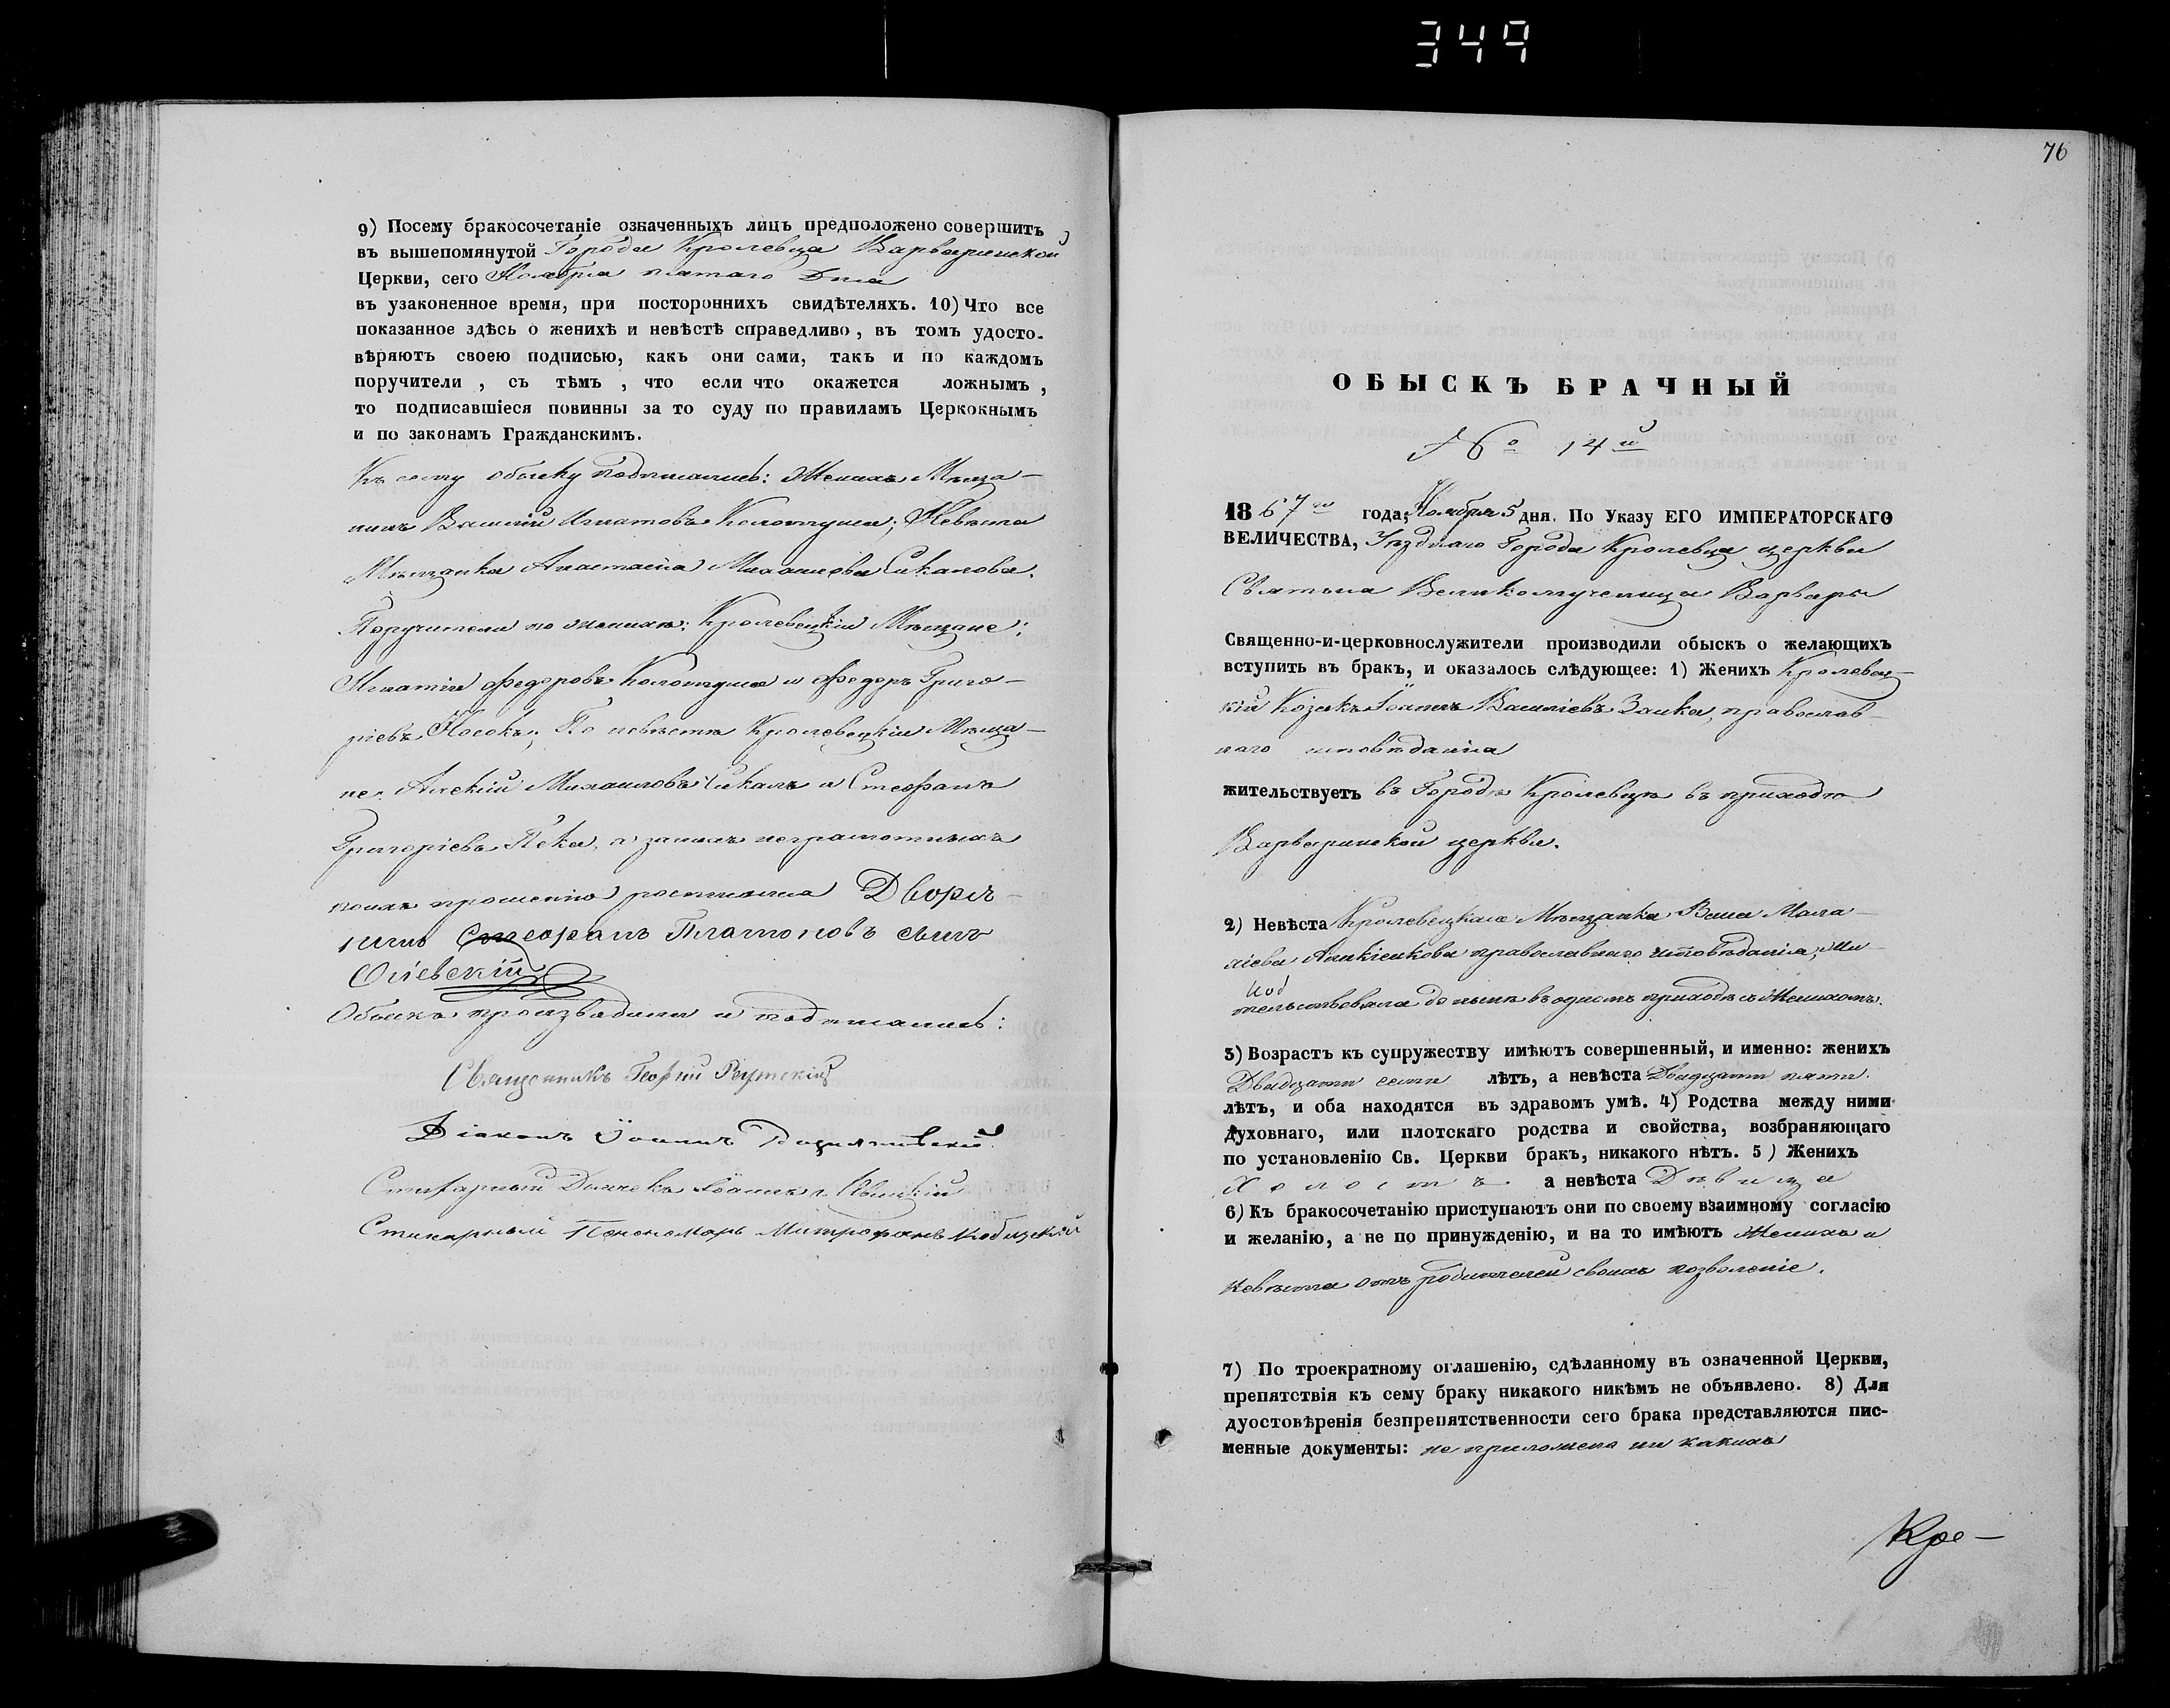 349
9) Посему бракосочетаніе означенныхъ лицъ предположено совершить
въ вышепомянутой Города Кролевца Варваринской
Церкви, сего Ноября пятаго дня
въ узаконенное время, при постороннихъ свидѣтеляхъ. 10) Что все
показанное здѣсь о женихѣ и невѣстѣ справедливо, въ томъ удосто-
вѣряютъ своею подписью, какъ они сами, такъ и по каждомъ
поручители, съ тѣмъ, что если что окажется ложнымъ,
то подписавшіеся повинны за то суду по правиламъ Церкокнымъ
и по законамъ Гражданскимъ.
Къ сему обыску подписались: Женихъ Мѣща-
нинъ Василій Игнатовъ Колотуша; Невѣста
Мѣщанка Анастасіа Михаилова Сикалова.
Поручители по женихѣ: Кролевецкіи Мѣщане:
Игнатій Федоровъ Колотуша и Федоръ Григо-
ріевъ Носокъ; По невѣстѣ Кролевецкіи Мѣща-
не: Алексій Михаиловъ Сикалъ и Стефанъ
Григоріевъ Пека, а за нихъ неграмотныхъ
прошенію росписался Дворя-
нинъ Стефанъ Платоновъ сынъ
Обыскъ производили и подписались:
Священникъ Георгій
Діаконъ Іоаннъ
Стихарный Дьячекъ Іоаннъ
Стихарный Пономарь Митрофанъ
76
ОБЫСКЪ БРАЧНЫЙ
№ 14й
1867го года, Ноября 5 дня. По Указу ЕГО ИМПЕРАТОРСКАГО
ВЕЛИЧЕСТВА, Уѣзднаго Города Кролевца церкви
Святыя Великомученицы Варвары
Священно-и-церковнослужители производили обыскъ о желающихъ
вступить въ бракъ, и оказалось слѣдующее: 1) Женихъ Кролевец-
кій Козакъ Іоаннъ Василіевъ Заика, православ-
наго исповѣданіа
жительствуетъ въ Городѣ Кролевцѣ въ приходѣ
Варваринской церкви.
2) Невѣста Кролевецкаа Мѣщанка Васа Мала-
хіева православнаго исповѣданіа, жи-
тельствовала до нынѣ въ одномъ приходѣ съ Женихомъ.
3) Возрастъ къ супружеству имѣютъ совершенный, и именно: женихъ
Двадцати семи лѣтъ, а невѣста Двадцати пяти
лѣтъ, и оба находятся въ здравомъ умѣ. 4) Родства между ними
духовнаго, или плотскаго родства и свойства, возбраняющаго
по установленію Св. Церкви бракъ, никакого нѣтъ. 5) Женихъ
Холостъ а невѣста Дѣвица
6) Къ бракосочетанію приступаютъ они по своему взаимному согласію
и желанію, а не по принужденію, и на то имѣютъ Женихъ и
Невѣста отъ родителей своихъ позволеніе.
7) По троекратному оглашенію, сдѣланному въ означенной Церкви,
препятствія къ сему браку никакого никѣмъ не объявлено. 8) Для
дуостовѣренія безпрепятственности сего брака представляются пис-
менные документы: не приложено ни какихъ
Кро-